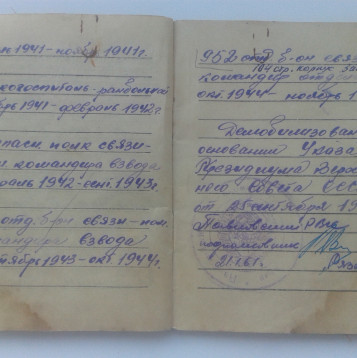 1941- ноябрь 1941г.
когоспиталь- районный
брь 1941- февраль 1942г.
полк связи-
командира взвода
раль 1942- сент. 1943г.
отд. б-н связи- пом.
командира взвода
тябрь 1943- окт. 1944г.
952 отд. б-он связ
командир отд
окт. 1944- ноябрь 1
Демобилизован
основании Указа
Президиума Верх
ного Совета ССС
от 25 сентября 19
подполковник
21.I.61.